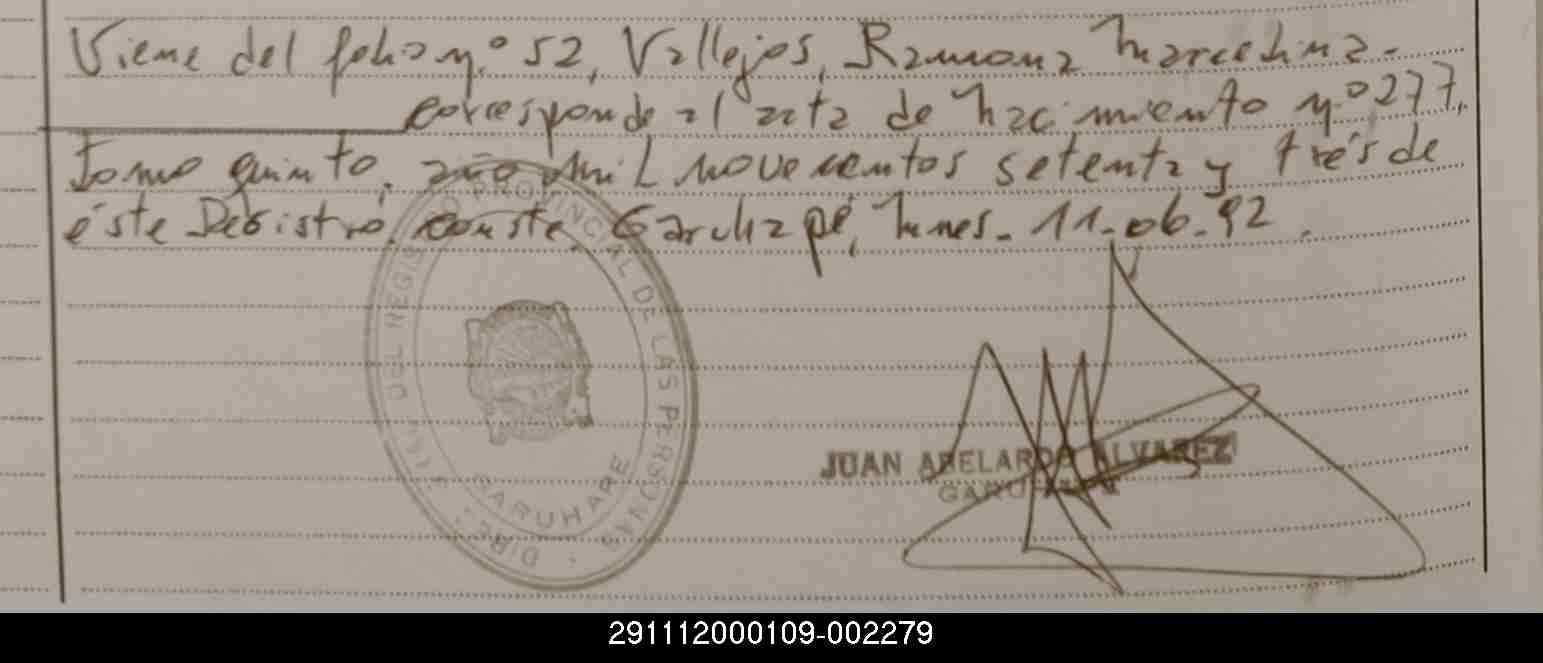 Viene del folio n.º 52, Vallejos, Ramona Marcelina.-
corresponde al acta de nacimiento nº 277,
Tomo quinto, año mil novecientos setenta y trés de
éste Registro, conste. Garuhapé, Lunes. 11.06.92.
DIRECCION GRAL DEL REGISTRO PROVINCIAL DE LAS PERSONAS
GARUHAPE
JUAN ABELARDO ALVAREZ
291112000109-002279